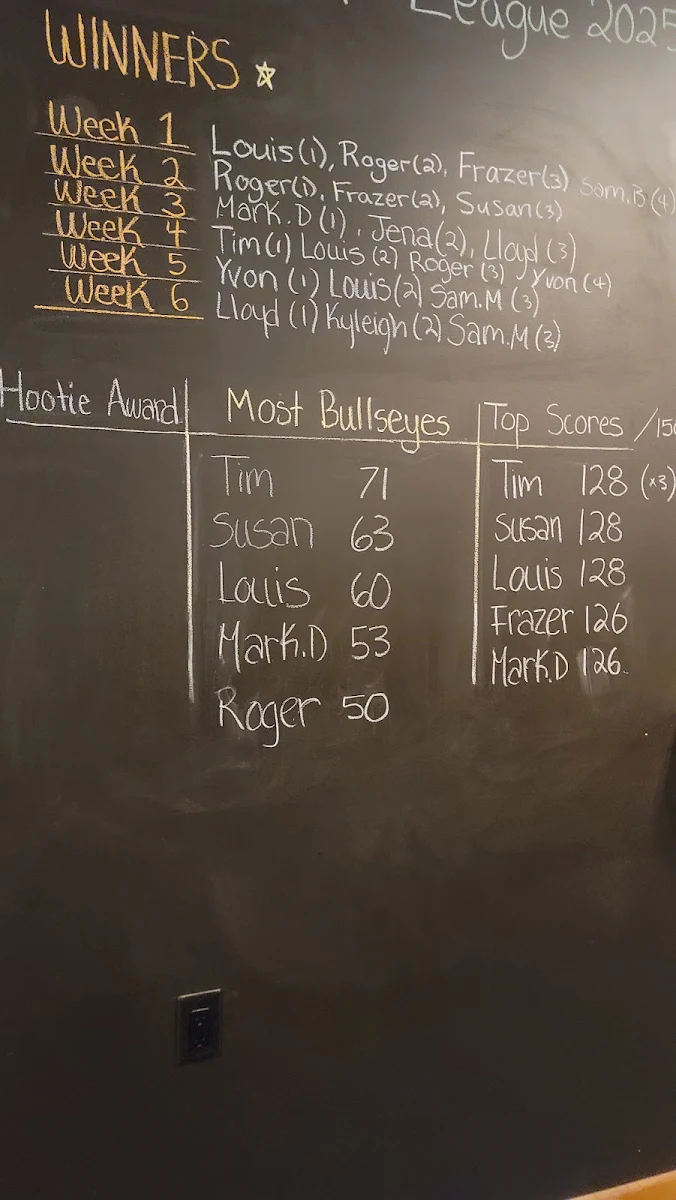 League 2025
WINNERS ☆
Week 1 Louis(1), Roger(2), Frazer(3) Sam.B(4)
Week 2 Roger(1), Frazer(2), Susan(3)
Week 3 Mark.D(1), Jena(2), Lloyd(3)
Week 4 Tim(1) Louis(2) Roger(3) Yvon(4)
Week 5 Yvon(1) Louis(2) Sam.M(3)
Week 6 Lloyd(1) Kyleigh(2) Sam.M(3)
Hootie Award Most Bullseyes Top Scores /150
Tim 71 Tim 128 (x3)
Susan 63 Susan 128
Louis 60 Louis 128
Mark.D 53 Frazer 126
Roger 50 Mark.D 126